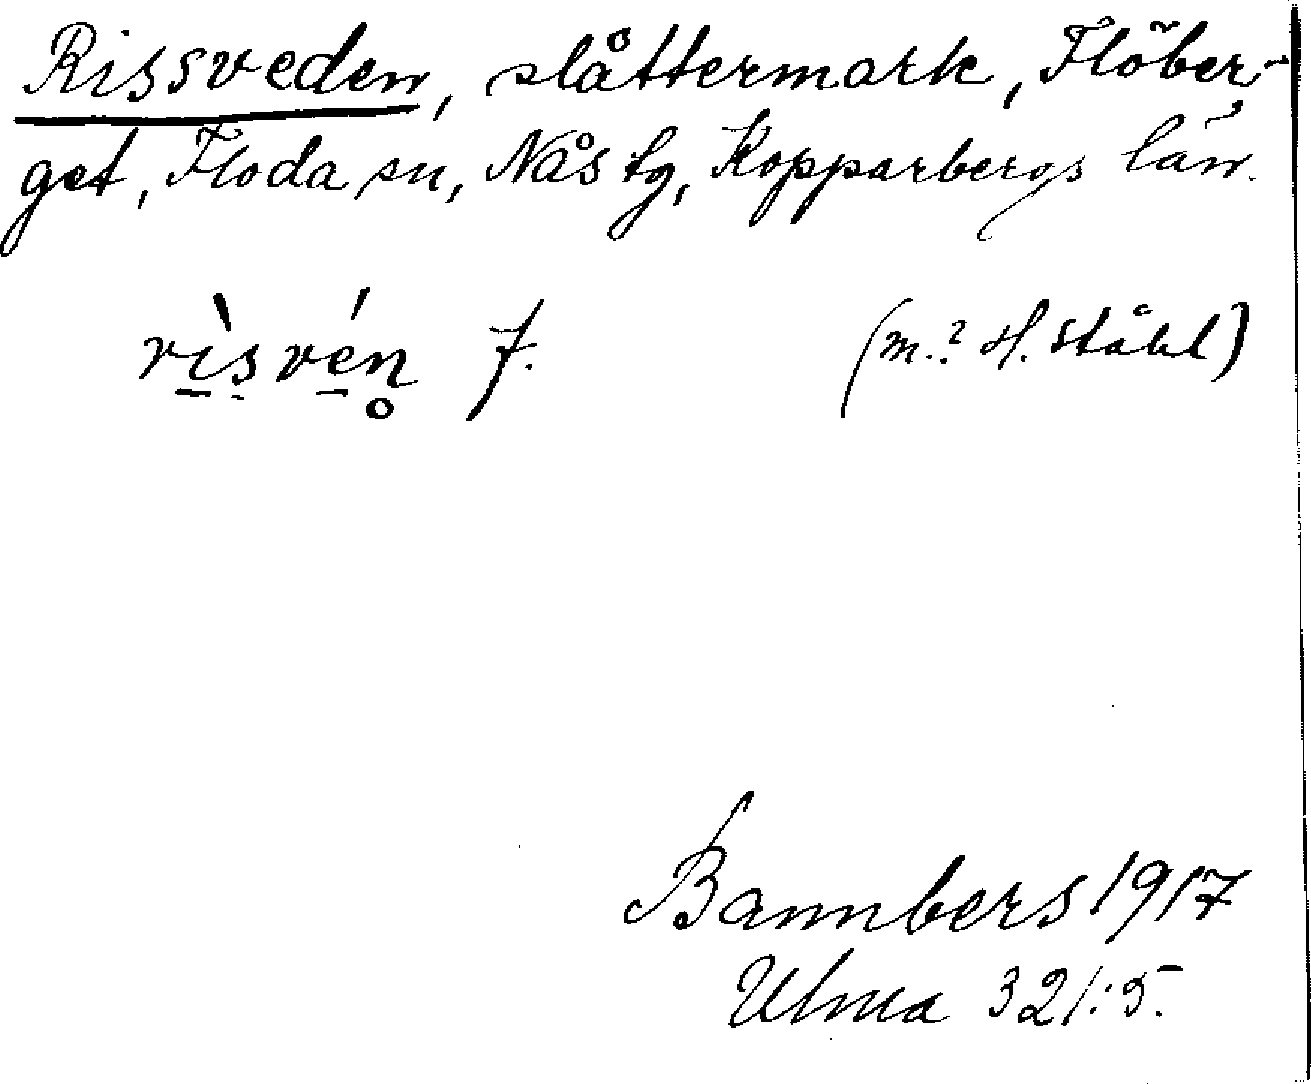 Rissveden, slåttermark, Flöber-
get, Floda sn, Nås tg, Kopparbergs län.
rı̀svén̥ f. (m.? H. Ståhl)
Bannbers 1917
Ulma 321:5.